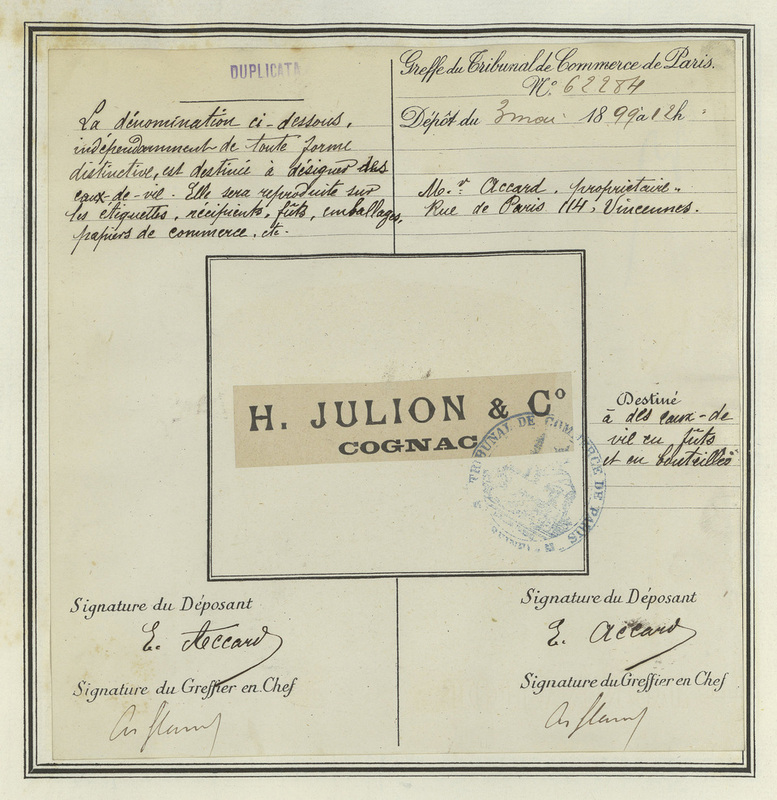 DUPLICATA
La dénomination ci-dessous,
indépendamment de toute forme
distinctive, est destinée à désigner des
eaux-de-vie. Elle sera reproduite sur
les étiquettes, récipients, fûts, emballages,
papiers de commerce, etc.
Greffe du Tribunal de Commerce de Paris.
N.º 62284
Dépôt du 3 mai 1899 à 12h
M.r Accard, propriétaire,
Rue de Paris 114, Vincennes.
H. JULION & Cº
COGNAC
TRIBUNAL DE COMMERCE DE PARIS
Destiné
à des eaux-de
vie en fûts
et en bouteilles
Signature du Déposant
E. Accard
Signature du Greffier en Chef
Signature du Déposant
E. Accard
Signature du Greffier en Chef